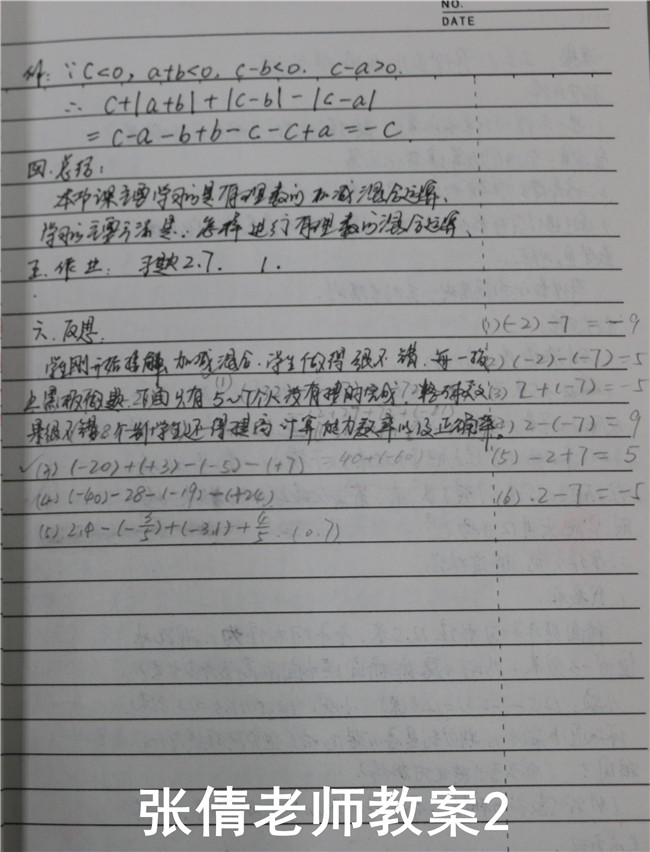 NO.
DATE
解: ∵ C<0, a+b<0, c-b<0. c-a>0.
∴ C+|a+b|+|c-b|-|c-a|
= c-a-b+b-c-c+a = -c.
四. 总结:
本节课主要学习的是有理数的加减混合运算、
学习的主要方法是: 怎样进行有理数的混合运算、
五. 作业: 习题2.7. 1.
六. 反思.
学生刚开始接触加减混合. 学生做得很不错. 每一板
上黑板做题. 下面只有5~7个人没有 的完成 整体效
果很不错 个别学生还得提高计算能力效率以及正确率。
(1) (-2)-7=-9
(2) (-2)-(-7)=5
(3) 2+(-7)=-5
2-(-7)=9
(5) -2+7=5
(6) 2-7=-5
√(3) (-20)+(+3)-(-5)-(+7)
(4) (-40)-28-(-19)+(+24)
(5) 2.4-(-3/5)+(-3.1)+4/5. (0.7)
张倩老师教案2